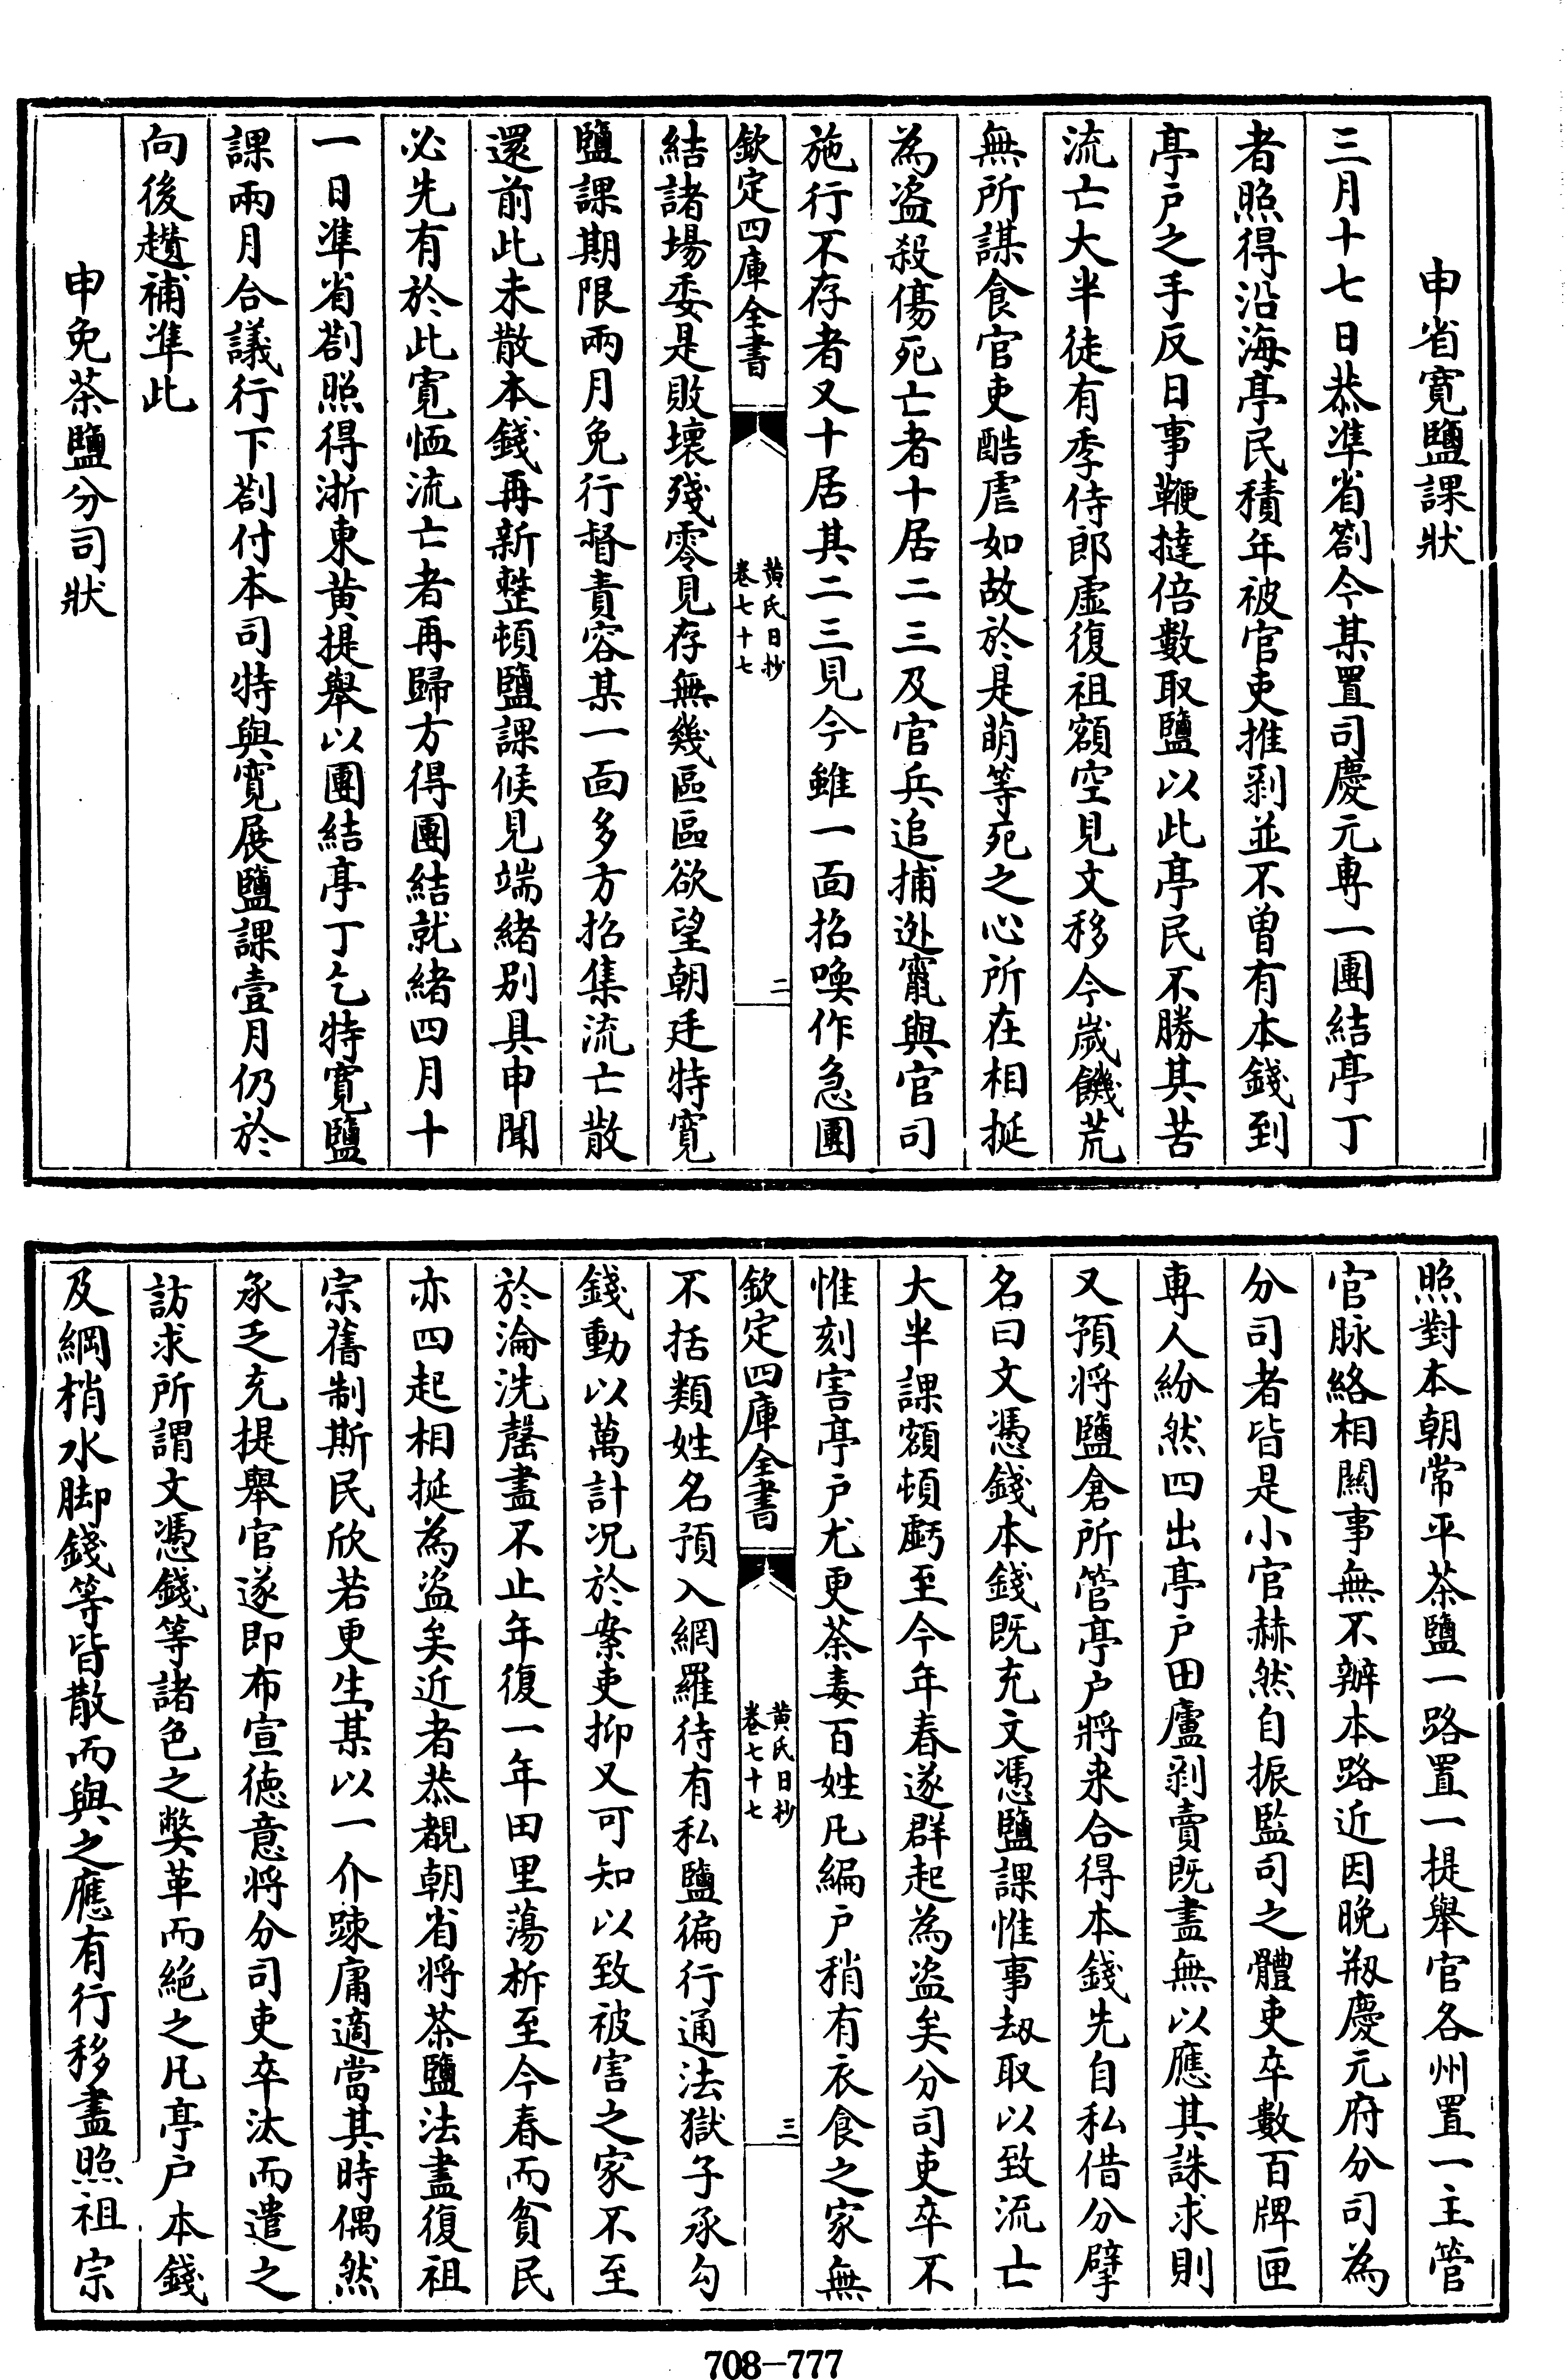 申省寛鹽課狀
三月十七日恭凖省劄今某置司慶元專一團結亭丁
者照得沿海亭民積年被官吏推剥並不曽有本錢到
亭户之手反日事鞭撻倍數取鹽以此亭民不勝其苦
流亡大半徒有季侍郎虚復祖額空見文移今嵗饑荒
無所謀食官吏酷虐如故於是萌等死之心所在相挺
為盗殺傷死亡者十居二三及官兵追捕迯竄與官司
施行不存者又十居其二三見今雖一面招喚作急團
欽定四庫全書
黄氏日抄
卷七十七
二
結諸場委是敗壞殘零見存無幾區區欲望朝廷特寛
鹽課期限兩月免行督責容某一面多方招集流亡散
還前此未散本錢再新整頓鹽課候見端緒别具申聞
必先有於此寛恤流亡者再歸方得團結就緒四月十
一日凖省劄照得浙東黄提舉以團結亭丁乞特寛鹽
課兩月合議行下劄付本司特與寛展鹽課壹月仍於
向後趲補凖此
申免茶鹽分司狀
照對本朝常平茶鹽一路置一提舉官各州置一主管
官脉絡相闗事無不辦本路近因晚剏慶元府分司為
分司者皆是小官赫然自振監司之體吏卒數百牌匣
專人紛然四出亭户田廬剥賣既盡無以應其誅求則
又預將鹽倉所管亭户將來合得本錢先自私借分擘
名曰文憑錢本錢既充文憑鹽課惟事刼取以致流亡
大半課額頓虧至今年春遂群起為盗矣分司吏卒不
惟刻害亭户尤更荼毒百姓凡編户稍有衣食之家無
欽定四庫全書
黄氏日抄
卷七十七
三
不括類姓名預入網羅待有私鹽徧行通法獄子承勾
錢動以萬計况於案吏抑又可知以致被害之家不至
於淪洗罄盡不止年復一年田里蕩柝至今春而貧民
亦四起相挺為盗矣近者恭覩朝省將茶鹽法盡復祖
宗舊制斯民欣若更生某以一介踈庸適當其時偶然
承乏充提舉官遂即布宣徳意將分司吏卒汰而遣之
訪求所謂文憑錢等諸色之弊革而絶之凡亭户本錢
及綱梢水脚錢等皆散而與之應有行移盡照祖宗
708-777